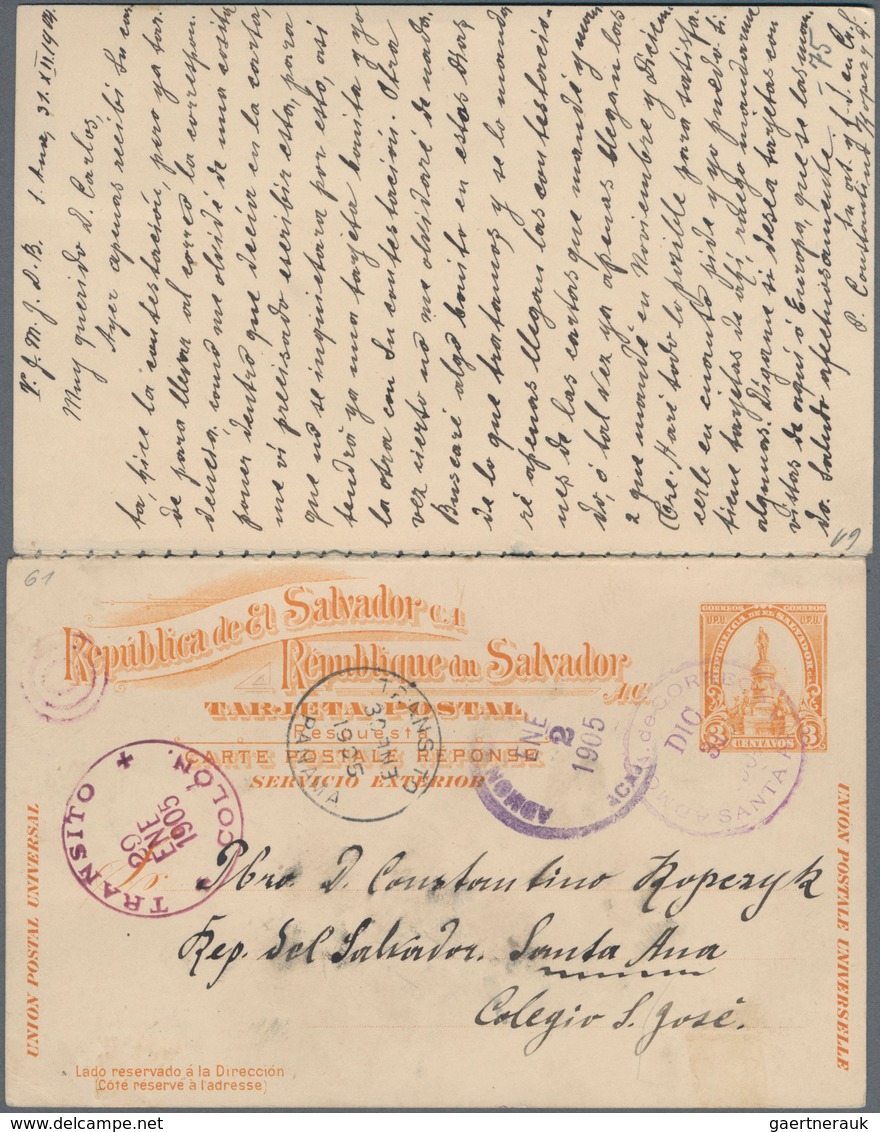 V. J. M. J. D. B. S. Ana, 31. XII. 1904.
Muy querido D. Carlos,
Ayer apenas recibí Su car
ta, hice la contestación, pero ya tar-
de para llevar al correo la correspon-
dencia, como me olvidé de una cosita
poner dentro que decía en la carta,
me ví precisado escribir esta, para
que no se inquietara por esto, así
tendrá ya una tarjeta bonita y yo
la otra con Su contestación. Otra
vez cierto no me olvidaré de nada.
Buscaré algo bonito en estos días
de lo que tratamos y se lo manda
ré apenas llegan las contestacio-
nes de las cartas que mandé y man
do, ó tal vez ya apenas llegan las
2 que mandé en Noviembre y Diciem
bre. Haré todo lo posible para satisfa-
serle en cuanto pide y yo puedo. Si
tiene tarjetas de allí ruego mandarme
algunas. Dígame si desea tarjetas con
vistas de aquí ó Europa, que se las man
do. Saludo afectuosamente
Su af. y S. S. en C. J.
P. Constantino Kopczyk
75
69
61
República de El Salvador C.A.
République du Salvador A.C.
TARJETA POSTAL
Respuesta
CARTE POSTALE RÉPONSE
SERVICIO EXTERIOR
CORREOS CORREOS
U.P.U. U.P.U.
REPUBLICA DE EL SALVADOR C.A.
3 CENTAVOS 3
TRANSITO
30 ENE
1905
PANAMA
ADMON
ENE
2
1905
ADMON. de CORREOS
DIC
SANTA
TRANSITO
29
ENE
1905
COLÓN.
UNION POSTAL UNIVERSAL
UNION POSTALE UNIVERSELLE
Pbro D. Constantino Kopczyk
Rep. del Salvador. Santa Ana
Colegio S. José.
Lado reservado á la Dirección
(Côté réservé à l'adresse)
gaertnerauk